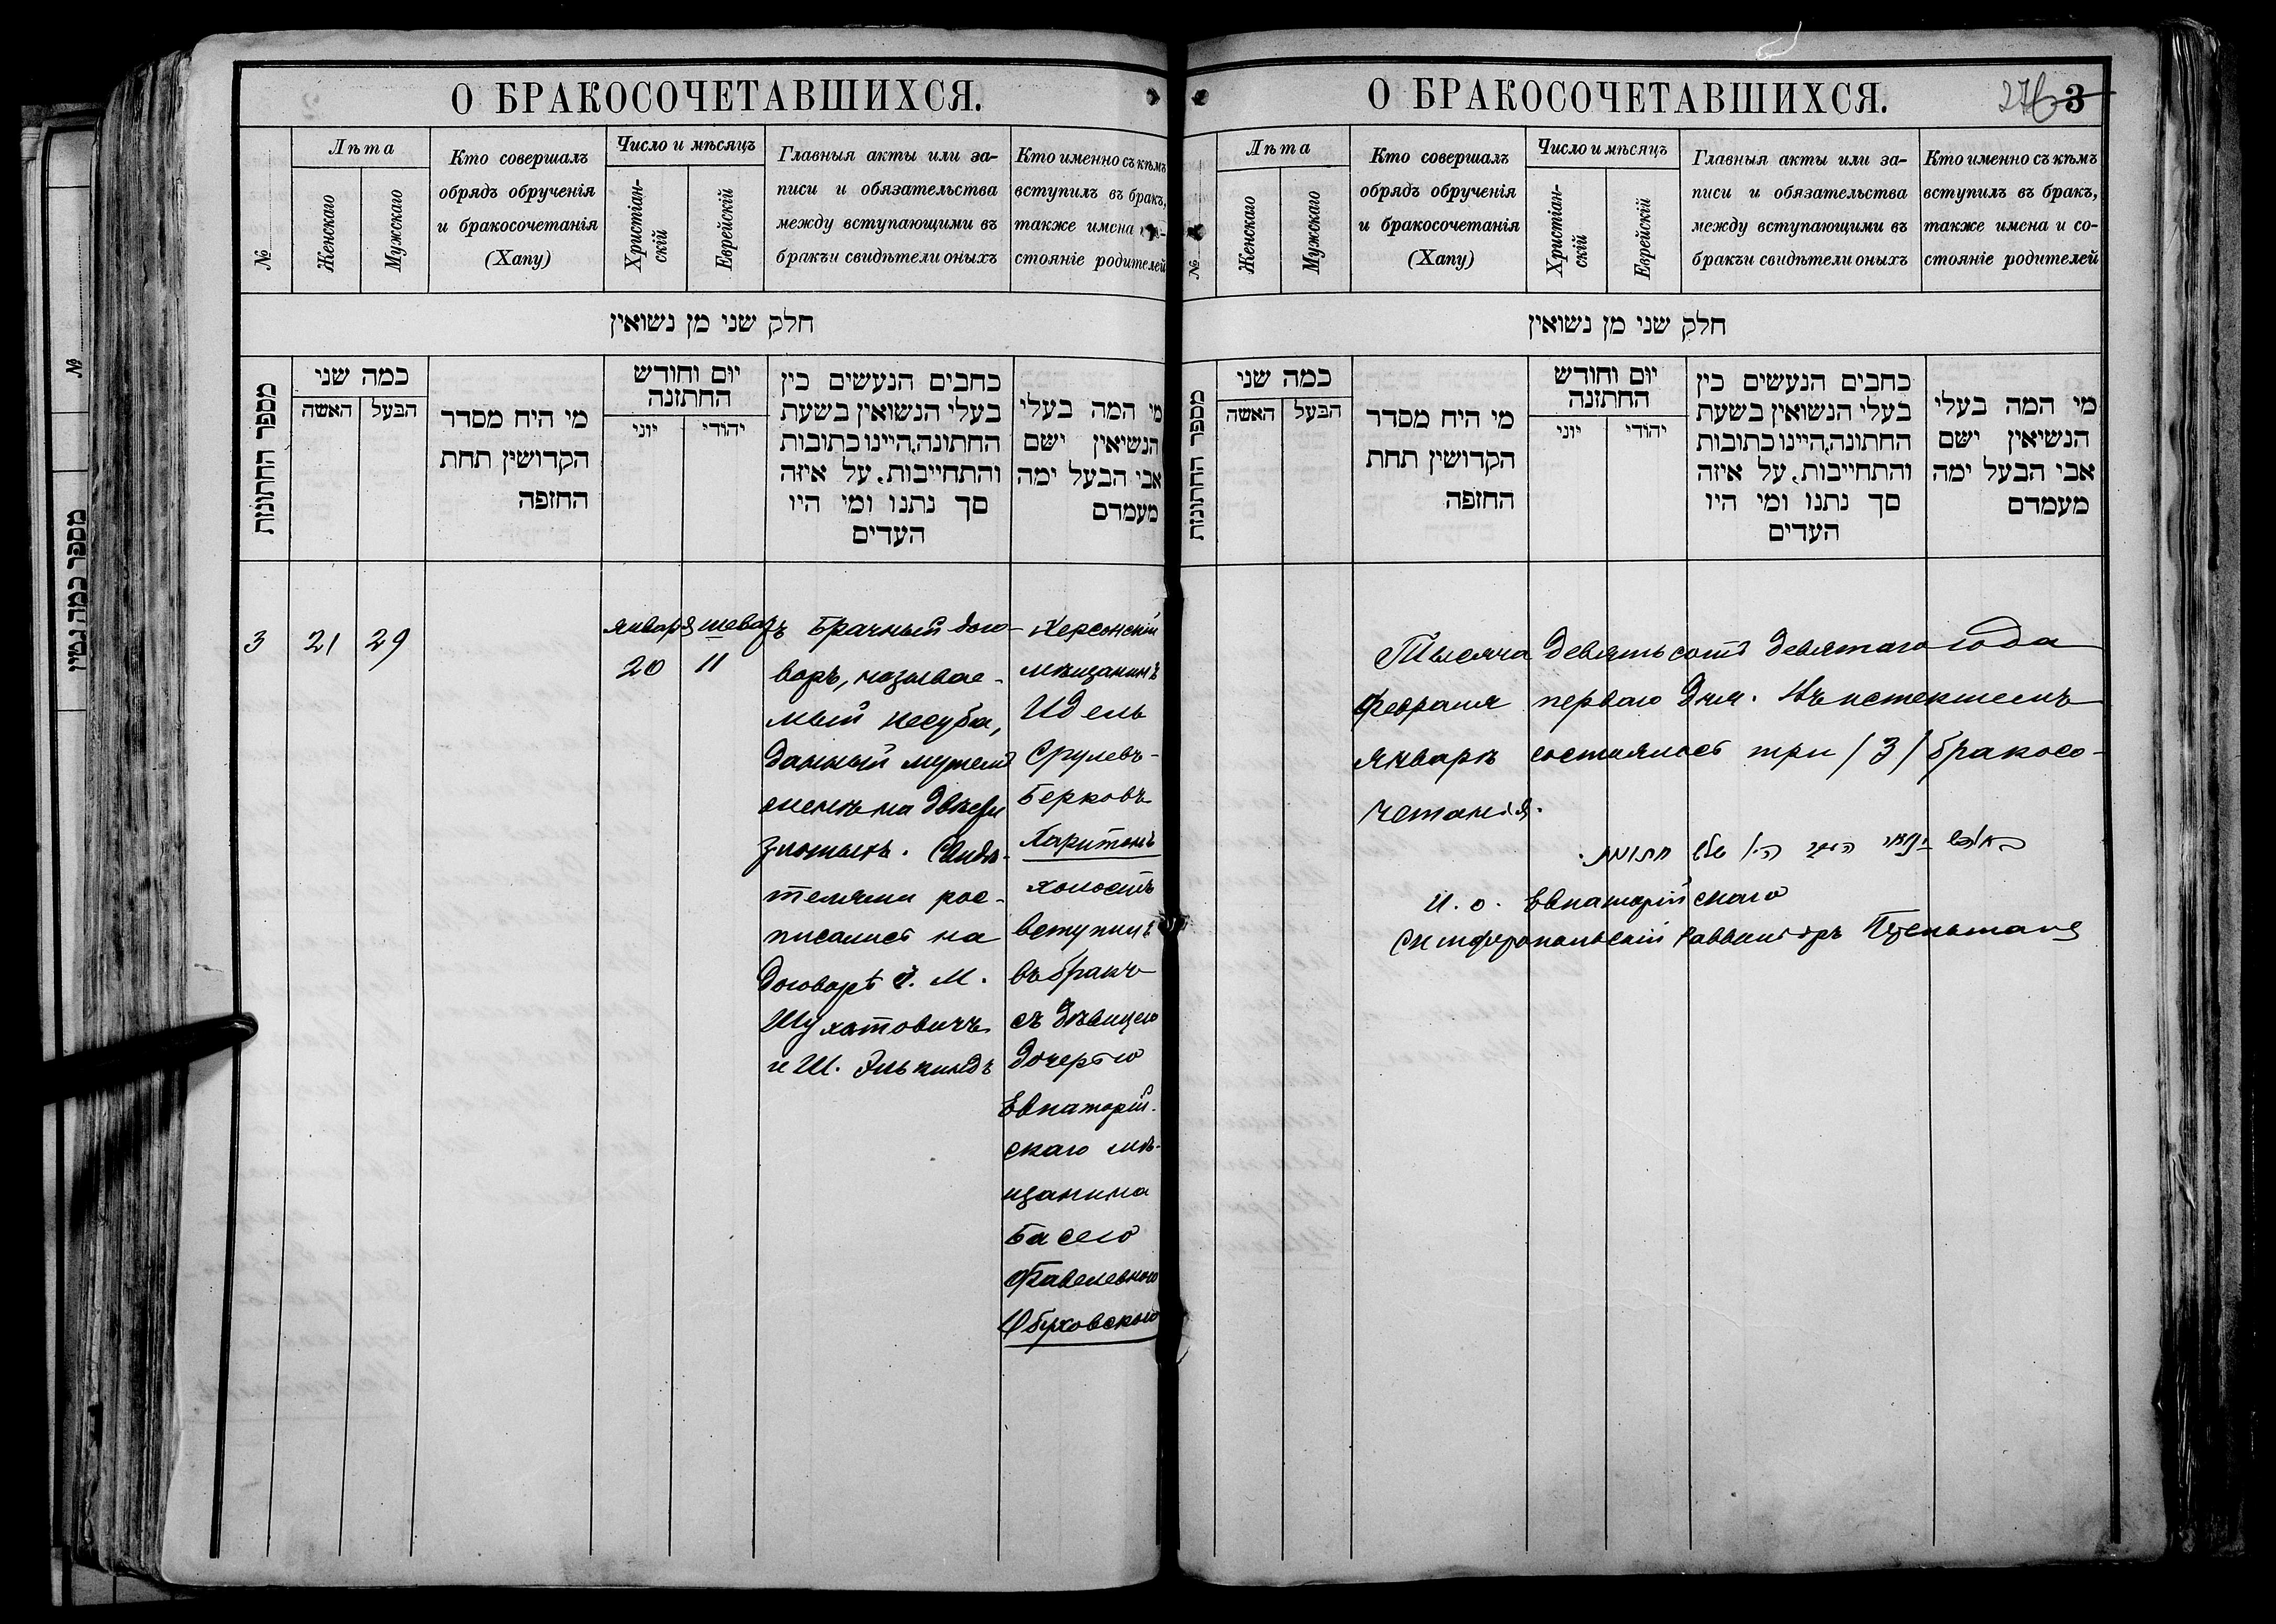 О БРАКОСОЧЕТАВШИХСЯ.
№
Лѣта
Женскаго
Мужскаго
Кто совершалъ
обрядъ обрученія
и бракосочетанія
(Хапу)
Число и мѣсяцъ
Христіан-
скій
Еврейскій
Главныя акты или за-
писи и обязательства
между вступающими въ
бракъ и свидѣтели оныхъ
Кто именно съ кѣмъ
вступилъ въ бракъ,
также имена
стояніе родителей
חלק שני מן נשואין
מספר החתונות
כמה שני
האשה
הבעל
מי היח מסדר
הקדושין תחת
החופה
יום וחודש
החתונה
יוני
יהודי
כתבים הנעשים בין
בעלי הנשואין בשעת
החתונה,היינו כתובות
והתחייבות, על איזה
סך נתנו ומי היו
העדים
מי המה בעלי
הנשיאין ישם
אבי הבעל ימה
מעמדם
3
21
29
января
20
шеватъ
11
Брачный дого-
воръ, называе-
мый кесуба,
данный мужемъ
женѣ на двѣсти
злотыхъ. Свидѣ-
телями рос-
писались на
договорѣ
и Ш. Элькиндъ
Херсонскій
мѣщанинъ
Идель
Срулевъ-
Берковъ
Харитонъ
холостъ
вступилъ
въ бракъ
съ дѣвицею
дочерью
Евпаторій-
скаго мѣ-
щанина
Басею
Обуховскою
О БРАКОСОЧЕТАВШИХСЯ.
276
3
№
Лѣта
Женскаго
Мужскаго
Кто совершалъ
обрядъ обрученія
и бракосочетанія
(Хапу)
Число и мѣсяцъ
Христіан-
скій
Еврейскій
Главныя акты или за-
писи и обязательства
между вступающими въ
бракъ и свидѣтели оныхъ
Кто именно съ кѣмъ
вступилъ въ бракъ,
также имена и со-
стояніе родителей
חלק שני מן נשואין
מספר החתונות
כמה שני
האשה
הבעל
מי היח מסדר
הקדושין תחת
החופה
יום וחודש
החתונה
יוני
יהודי
כתבים הנעשים בין
בעלי הנשואין בשעת
החתונה,היינו כתובות
והתחייבות, על איזה
סך נתנו ומי היו
העדים
מי המה בעלי
הנשיאין ישם
אבי הבעל ימה
מעמדם
Тысяча девятьсотъ девятаго года
февраля перваго дня. Въ истекшемъ
январѣ состоялось три /3/ бракосо-
четанія.
И. о. Евпаторійскаго
Симферопольскій Раввинъ
№
מספר כמה גטין